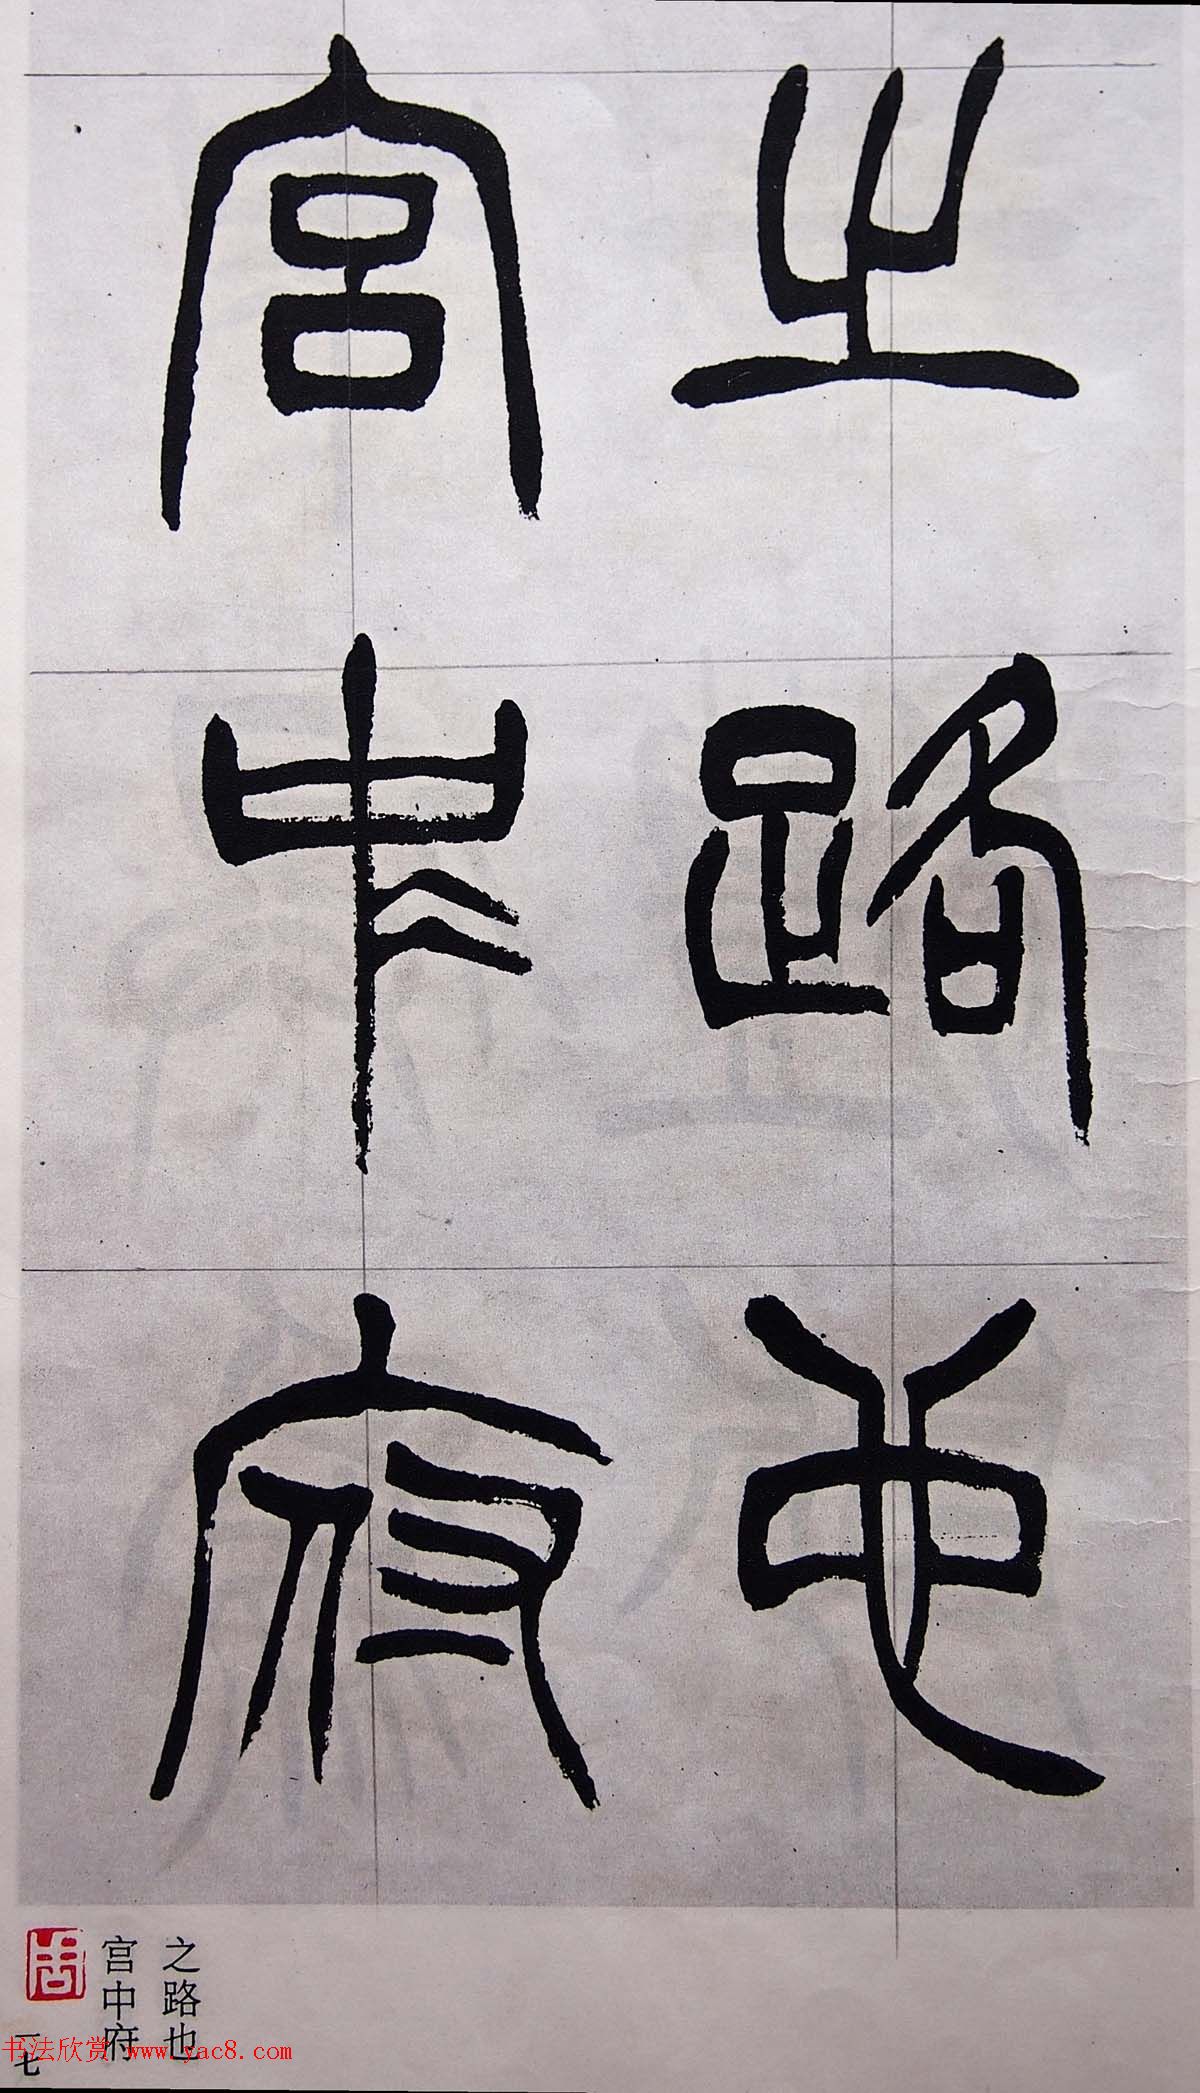 之路也
宫中府
之路也
宫中府
周
一七
书法欣赏 www.yac8.com